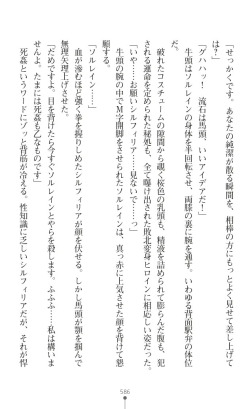 「せっかくです。あなたの純潔が散る瞬間を、相棒の方にもっとよく見せて差し上げて
は？」
「グハハッ！　流石は馬頭、いいアイデアだ！」
　牛頭はソルレインの身体を半回転させ、両膝の裏に腕を通す。いわゆる背面駅弁の体位
だ。
　破れたコスチュームの隙間から覗く桜色の乳頭も、精液を詰められて膨らんだ腹も、犯
される運命を定められた秘処も、全て曝け出された敗北変身ヒロインに相応しい姿だった。
「いや……お願いシルフィリア……見ないで……っ」
　牛頭の腕の中でＭ字開脚をさせられたソルレインは、真っ赤にさせた顔を背けて懇
願する。
「ソルレイン……」
　血が滲むほど強く拳を握りしめたシルフィリアが顔を伏せる。しかし馬頭が顎を掴んで
無理矢理上げさせた。
「だめですよ。目を背けたら今すぐソルレインとやらを殺します。ふふふ……私は構いま
せんよ。たまには死姦も乙なものです」
　死姦というワードにゾッと背筋が冷える。性知識に乏しいシルフィリアだが、それが悍
586